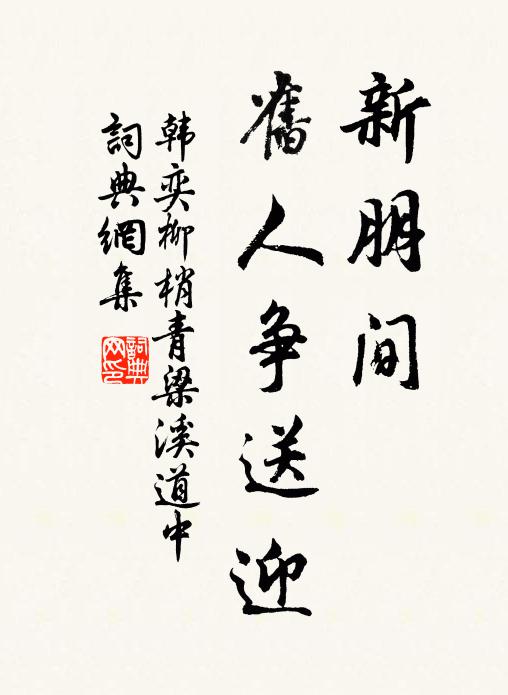 新朋间
舊人争送迎
韩奕柳梢青梁溪道中
詞典網集
詞典網印